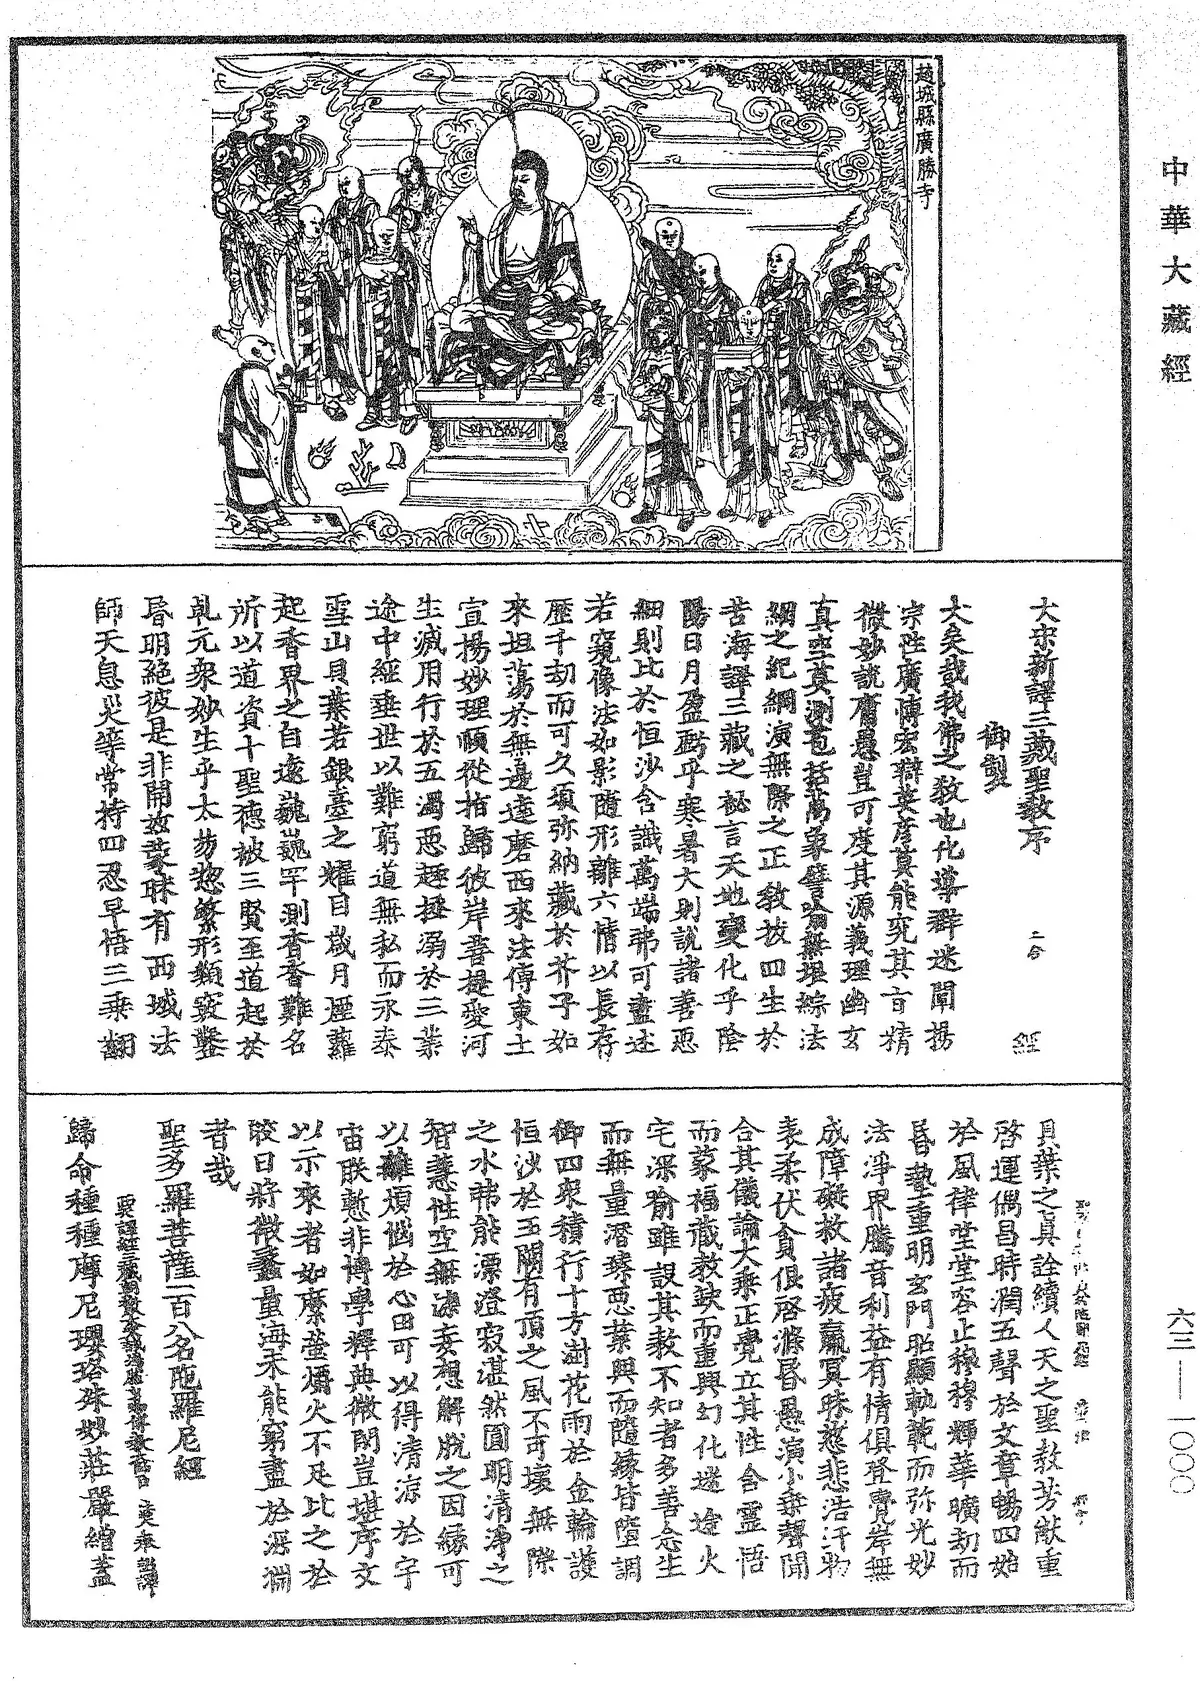 中華大藏經
趙城縣廣勝寺
大宋新譯三藏聖教序 二合 經
御製
大矣哉我佛之教也化導群迷闡揚
宗性廣博宏辯英彥莫能究其旨精
微妙說庸愚豈可度其源義理幽玄
真空莫測苞括萬象譬喻無垠綜法
網之紀綱演無際之正教拔四生於
苦海譯三藏之秘言天地變化乎陰
陽日月盈虧乎寒暑大則說諸善惡
細則比於恒沙含識萬端弗可盡述
若窺像法如影隨形離六情以長存
歷千劫而可久須彌納藏於芥子如
來坦蕩於無邊達磨西來法傳東土
宣揚妙理順從指歸彼岸菩提愛河
生滅用行於五濁惡趣拯溺於三業
途中經垂世以難窮道無私而永泰
雪山貝葉若銀臺之耀目歲月煙蘿
起香界之自遠巍巍罕測杳杳難名
所以道資十聖德被三賢至道起於
乹元衆妙生乎太易惣繁形類竅鑿
昏明絕彼是非開兹蒙昧有西域法
師天息災等常持四忍早悟三乘翻
貝葉之真詮續人天之聖教芳猷重
啓運偶昌時潤五聲於文章暢四始
於風律堂堂容止穆穆輝華曠劫而
昏墊重明玄門昭顯軌範而弥光妙
法淨界騰音利益有情俱登覺岸無
成障礙救諸疲羸冥昧慈悲浩汗物
表柔伏貪很啓滌昏愚演小乘聲聞
合其儀論大乘正覺立其性含靈悟
而蒙福藏教缺而重興幻化迷途火
宅深喻雖設其教不知者多善念生
而無量潛臻惡業興而隨緣皆墮調
御四衆積行十方澍花雨於金輪護
恒沙於玉闕有頂之風不可壞無際
之水弗能漂澄寂湛然圓明清淨之
智慧性空無染妄想解脫之因緣可
以離煩惱於心田可以得清涼於宇
宙朕慙非博學釋典微閑豈堪序文
以示來者如縻螢爝火不足比之於
皎日將微蠡量海未能窮盡於深淵
者哉
聖多羅菩薩一百八名陁羅尼經
西天譯經三藏朝散大夫試鴻臚少卿傳教大師臣法天奉詔譯
歸命種種摩尼瓔珞殊妙莊嚴繒蓋
六三—一〇〇〇